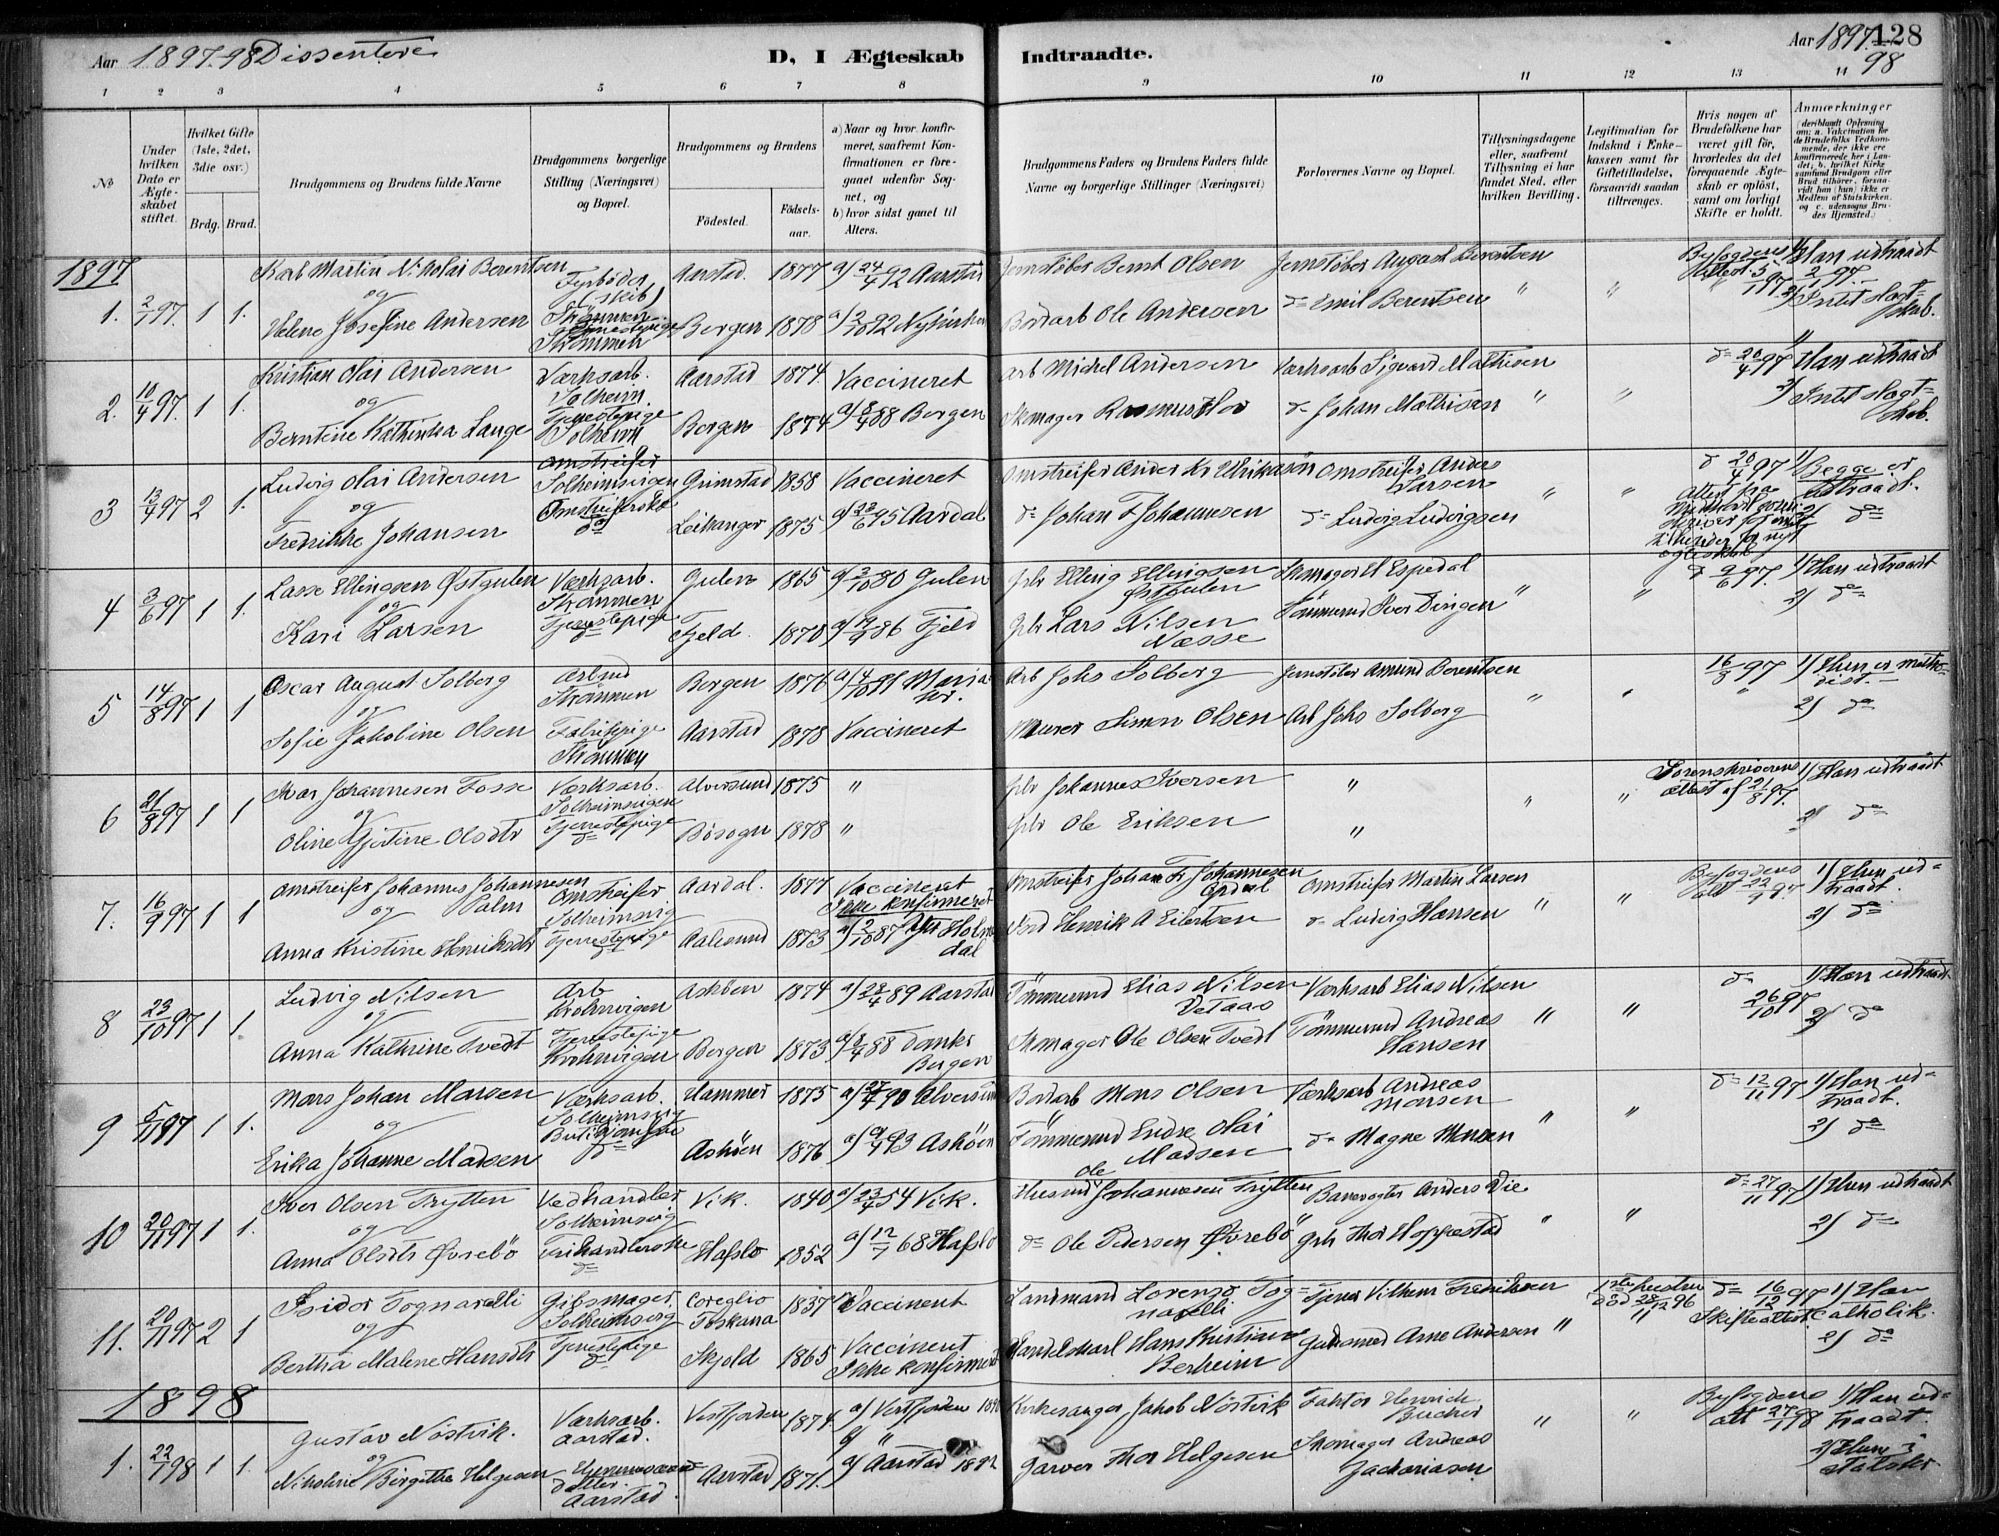 Aar 1897-98 Dissentere
D, I Ægteskab Indtraadte.
Aar 1897-98
128
1 2 3 4 5 6 7 8 9 10 11 12 13 14
No
Under hvilken Dato er Ægteskabet stiftet.
Hvilket Gifte (1ste, 2det, 3die osv.)
Brdg. Brud.
Brudgommens og Brudens fulde Navne
Brudgommens borgerlige Stilling (Næringsvei) og Bopæl.
Brudgommens og Brudens
Födested.
Födsels-aar.
a) Naar og hvor konfirmeret, saafremt Konfirmationen er foregaaet udenfor Sognet, og
b) hvor sidst gaaet til Alters.
Brudgommens Faders og Brudens Faders fulde Navne og borgerlige Stillinger (Næringsvei)
Forlovernes Navne og Bopæl.
Tillysningsdagene eller, saafremt Tillysning ei har fundet Sted, efter hvilken Bevilling.
Legitimation for Indskud i Enkekassen samt for Giftetilladelse, forsaavidt saadan tiltrænges.
Hvis nogen af Brudefolkene har været gift för, hvorledes da det foregaaende Ægteskab er oplöst, samt om lovligt Skifte er holdt.
Anmærkninger
1897
1. 2/1 97. 1 1.
Karl Martin Nikolai Berentsen
og
Valene Josefine Andersen
Fyrböder (skib) Strömmen
Tjenestepige Strömmen
Aarstad. 1877 a) 24/4 92 Aarstad
Bergen 1878 a) 2/10 92 Nykirken
Jernstöber Bernt Olsen
Bordarb Ole Andersen
Jernstöber August Berentsen
do Emil Berentsen
" "
Byfogdens Attest 5/1 97
1/ Han udtraadt 2/1 97.
2/ Intet Slægtskab.
2. 10/4 97. 1 1.
Kristian Olai Andersen
og
Berntine Kathinka Lange
Værksarb. Solheim.
Tjenestepige Solheim
Aarstad 1874 Vaccineret
Bergen 1874 a) 8/4 88 Bergen
Arb Michel Andersen
Skomager Rasmus Hov
Værksarb Sigvard Mathisen
do Johan Mathisen
" "
do 20/4 97
1/ Han udtraadt
2/ Intet slægtskab.
3 13/4 97 2 1.
Ludvig Olai Andersen
og
Fredrikke Johansen
Omstreifer Solheimsvigen
Omstreiferske do
Grimstad 1858 Vaccineret
Leikanger 1875 a) 23/6 95 Aardal
Omstreifer Anders Kr Ulrikssön
do Johan F Johannesen
Omstreifer Anders Larsen
do Ludvig Ludvigsen
" "
do 20/4 97
1/ Begge er udtraadt.
2/ do
4 3/6 97 1 1.
Lasse Ellingsen Östgulen
og
Kari Larsen
Værksarb. Strömmen
Tjenestepige do
Gulen 1865 a) 3/10 80 Gulen
Fjeld. 1870 a) 19/9 86 Fjeld
Gbr Elling Ellingsen Östgulen
Gbr Lars Nilsen Næsse
Skomager H Espedal
Tömmermd Iver Dingen
" "
do 9/6 97.
1/ Han udtraadt
2/ do
5 14/8 97 1 1
Oscar August Solberg
og
Sofie Jakobine Olsen
Arbmd Strömmen
Fabrikpige Strömmen
Bergen 1876 a) 4/10 91 Mariakr.
Aarstad 1878 Vaccineret
Arb Johs Solberg
Murer Simon Olsen
Jernstöber Amund Berentsen
Arb Johs Solberg
16/8 97
1/ Hun er methodist.
2/ do
6 21/8 97 1 1
Ivar Johannesen Fosse
og
Oline Gjertine Olsdtr
Værksarb. Solheimsvigen
Tjenestepige do
Alversund 1875 "
Bösogn 1878 "
Gbr Johannes Iversen
Gbr Ole Eriksen
"
"
" "
Sorenskriverens attest af 21/8 97.
1/ Han udtraadt
2/ do
7. 16/9 97 1 1
Omstreifer Johannes Johannesen Palm
og
Anna Kristine Henriksdtr
Omstreifer Solheimsvig
Tjenestepige do
Aardal. 1877 Vaccineret Ikke konfirmeret
Aalesund 1873 a) 2/10 87 Ytre Holmedal
Omstreifer Johan Fr Johannesen Opdal
Nord Henrik A Eilertsen
Omstreifer Martin Larsen
do Ludvig Hansen
" "
Byfogdens att 22/9 97.
1/ Hun udtraadt.
2/ do
8 23/10 97 1 1.
Ludvig Nilsen
og
Anna Kathrine Tvedt
Arb Krohnvigen
Tjenestepige Krohnvigen
Askben 1874 a) 28/4 89 Aarstad
Bergen 1873 a) 8/4 88 Domkr Bergen
Tömmermd Elias Nilsen Vetaas
Skomager Ole Olsen Tvedt
Værksarb Elias Nilsen
Tömmermd Andreas Hansen
" "
do 26/10 97
1/ Han udtraadt
2/ do
9 5/11 97 1 1.
Mons Johan Monsen
og
Erika Johanne Madsen
Værksarb. Solheimsvig
do
Hammer 1875 a) 27/4 90 Alversund
Asköen 1876 a) 9/4 93 Asköen
Bordarb Mons Olsen
Tömmermd Endre Olai Madsen
Værksarb Andreas Monsen
do Magne Monsen
" "
do 12/11 97
1/ Han udtraadt.
2/ do
10 20/11 97 1 1.
Iver Olsen Trytten
og
Anna Olsdtr Övrebö
Vedhandler Solheimsvig
do
Vik. 1840 a) 23/4 54 Vik.
Hafslo 1852 a) 12/7 68 Hafslo
Husmd Ole Johannesen Trytten
do Ole Pedersen Övrebö
Banevogter Anders Vie
Gbr Thor Hoppestad
" "
do 27/11 97
1/ Hun udtraadt
2/ do
11. 20/11 97 2 1
Isidor Tognarelli
og
Bertha Malene Hansdtr
Gibsmager. Solheimsvig
Tjenestepige do
Coreglio Toskana 1837 Vaccineret
Skjold 1865 Vaccineret Ikke konfirmeret
Landmand Lorenzo Tognarelli
Handelskarl Hans Kristian Berheim
Tjener Vilhelm Fredriksen
Guldsmed Arne Andersen
"
1ste hustru död 28/12 96
do 16/12 97 Skifteattest
1/ Han Catholik.
2/ do
1898
1. 22/1 98 1 1
Gustav Nöstvik.
og
Nikoline Birgitha Helgesen
Værksarb. Aarstad.
datter. Aarstad.
Vestfjorden 1874. a) Vestfjorden 1890 b) "
Aarstad 1871. a) Aarstad
Kirkesanger Jakob Nöstvik
Garver Thor Helgesen
Faktor Henrich Bucher
Skomager Andreas Zachariasen
" "
Byfogdens att 27/1 98
1/ Han udtraadt.
2/ Hun i statskr